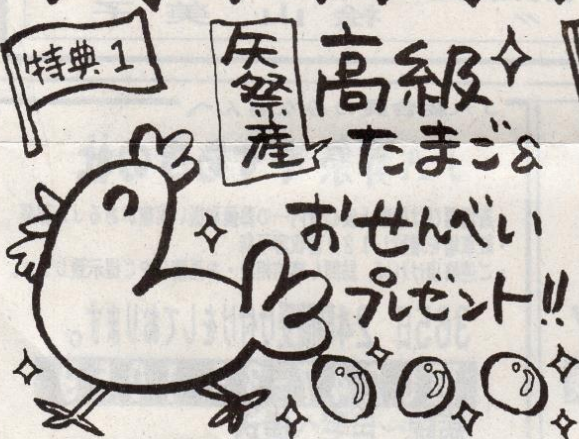 特典1
矢祭産
高級
たまご&
おせんべい
プレゼント!!